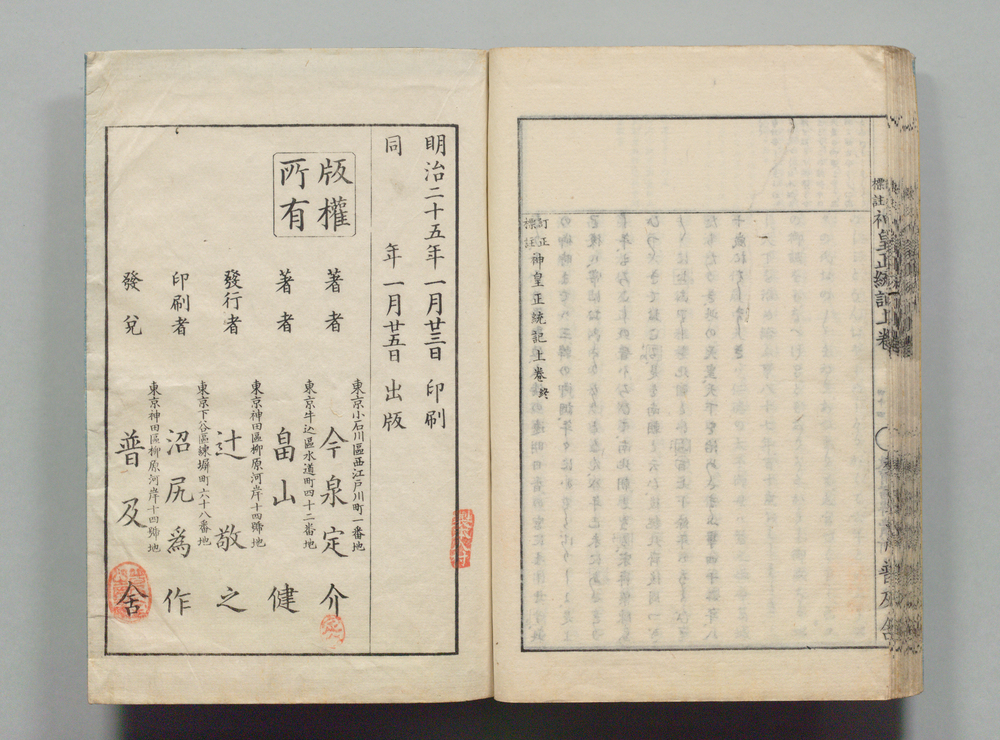 標註神皇正統記上卷
普及舍
訂正
標註
神皇正統記上卷終
明治二十五年一月廿三日印刷
同年一月廿五日出版
版權
所有
著者
東京小石川區西江戸川町一番地
今泉定介
著者
東京牛込區水道町四十二畨地
畠山健
發行者
東京神田區柳原河岸十四號地
辻敬之
印刷者
東京下谷區練塀町六十八番地
沼尻爲作
發兌
東京神田區柳原河岸十四號地
普及舍